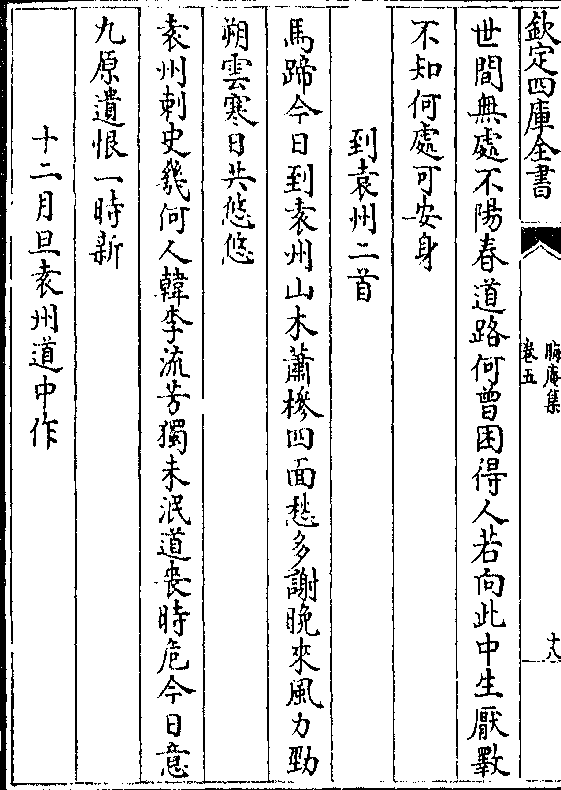 欽定四庫全書
世間無處不陽春道路何曾困得人若向此中生厭斁
不知何處可安身
到袁州二首
馬蹄今日到袁州山木蕭槮四面愁多謝晚來風力勁
朔雲寒日共悠悠
袁州刺史幾何人韓李流芳獨未泯道喪時危今日意
九原遺恨一時新
十二月旦袁州道中作
晦庵集
卷五
十八